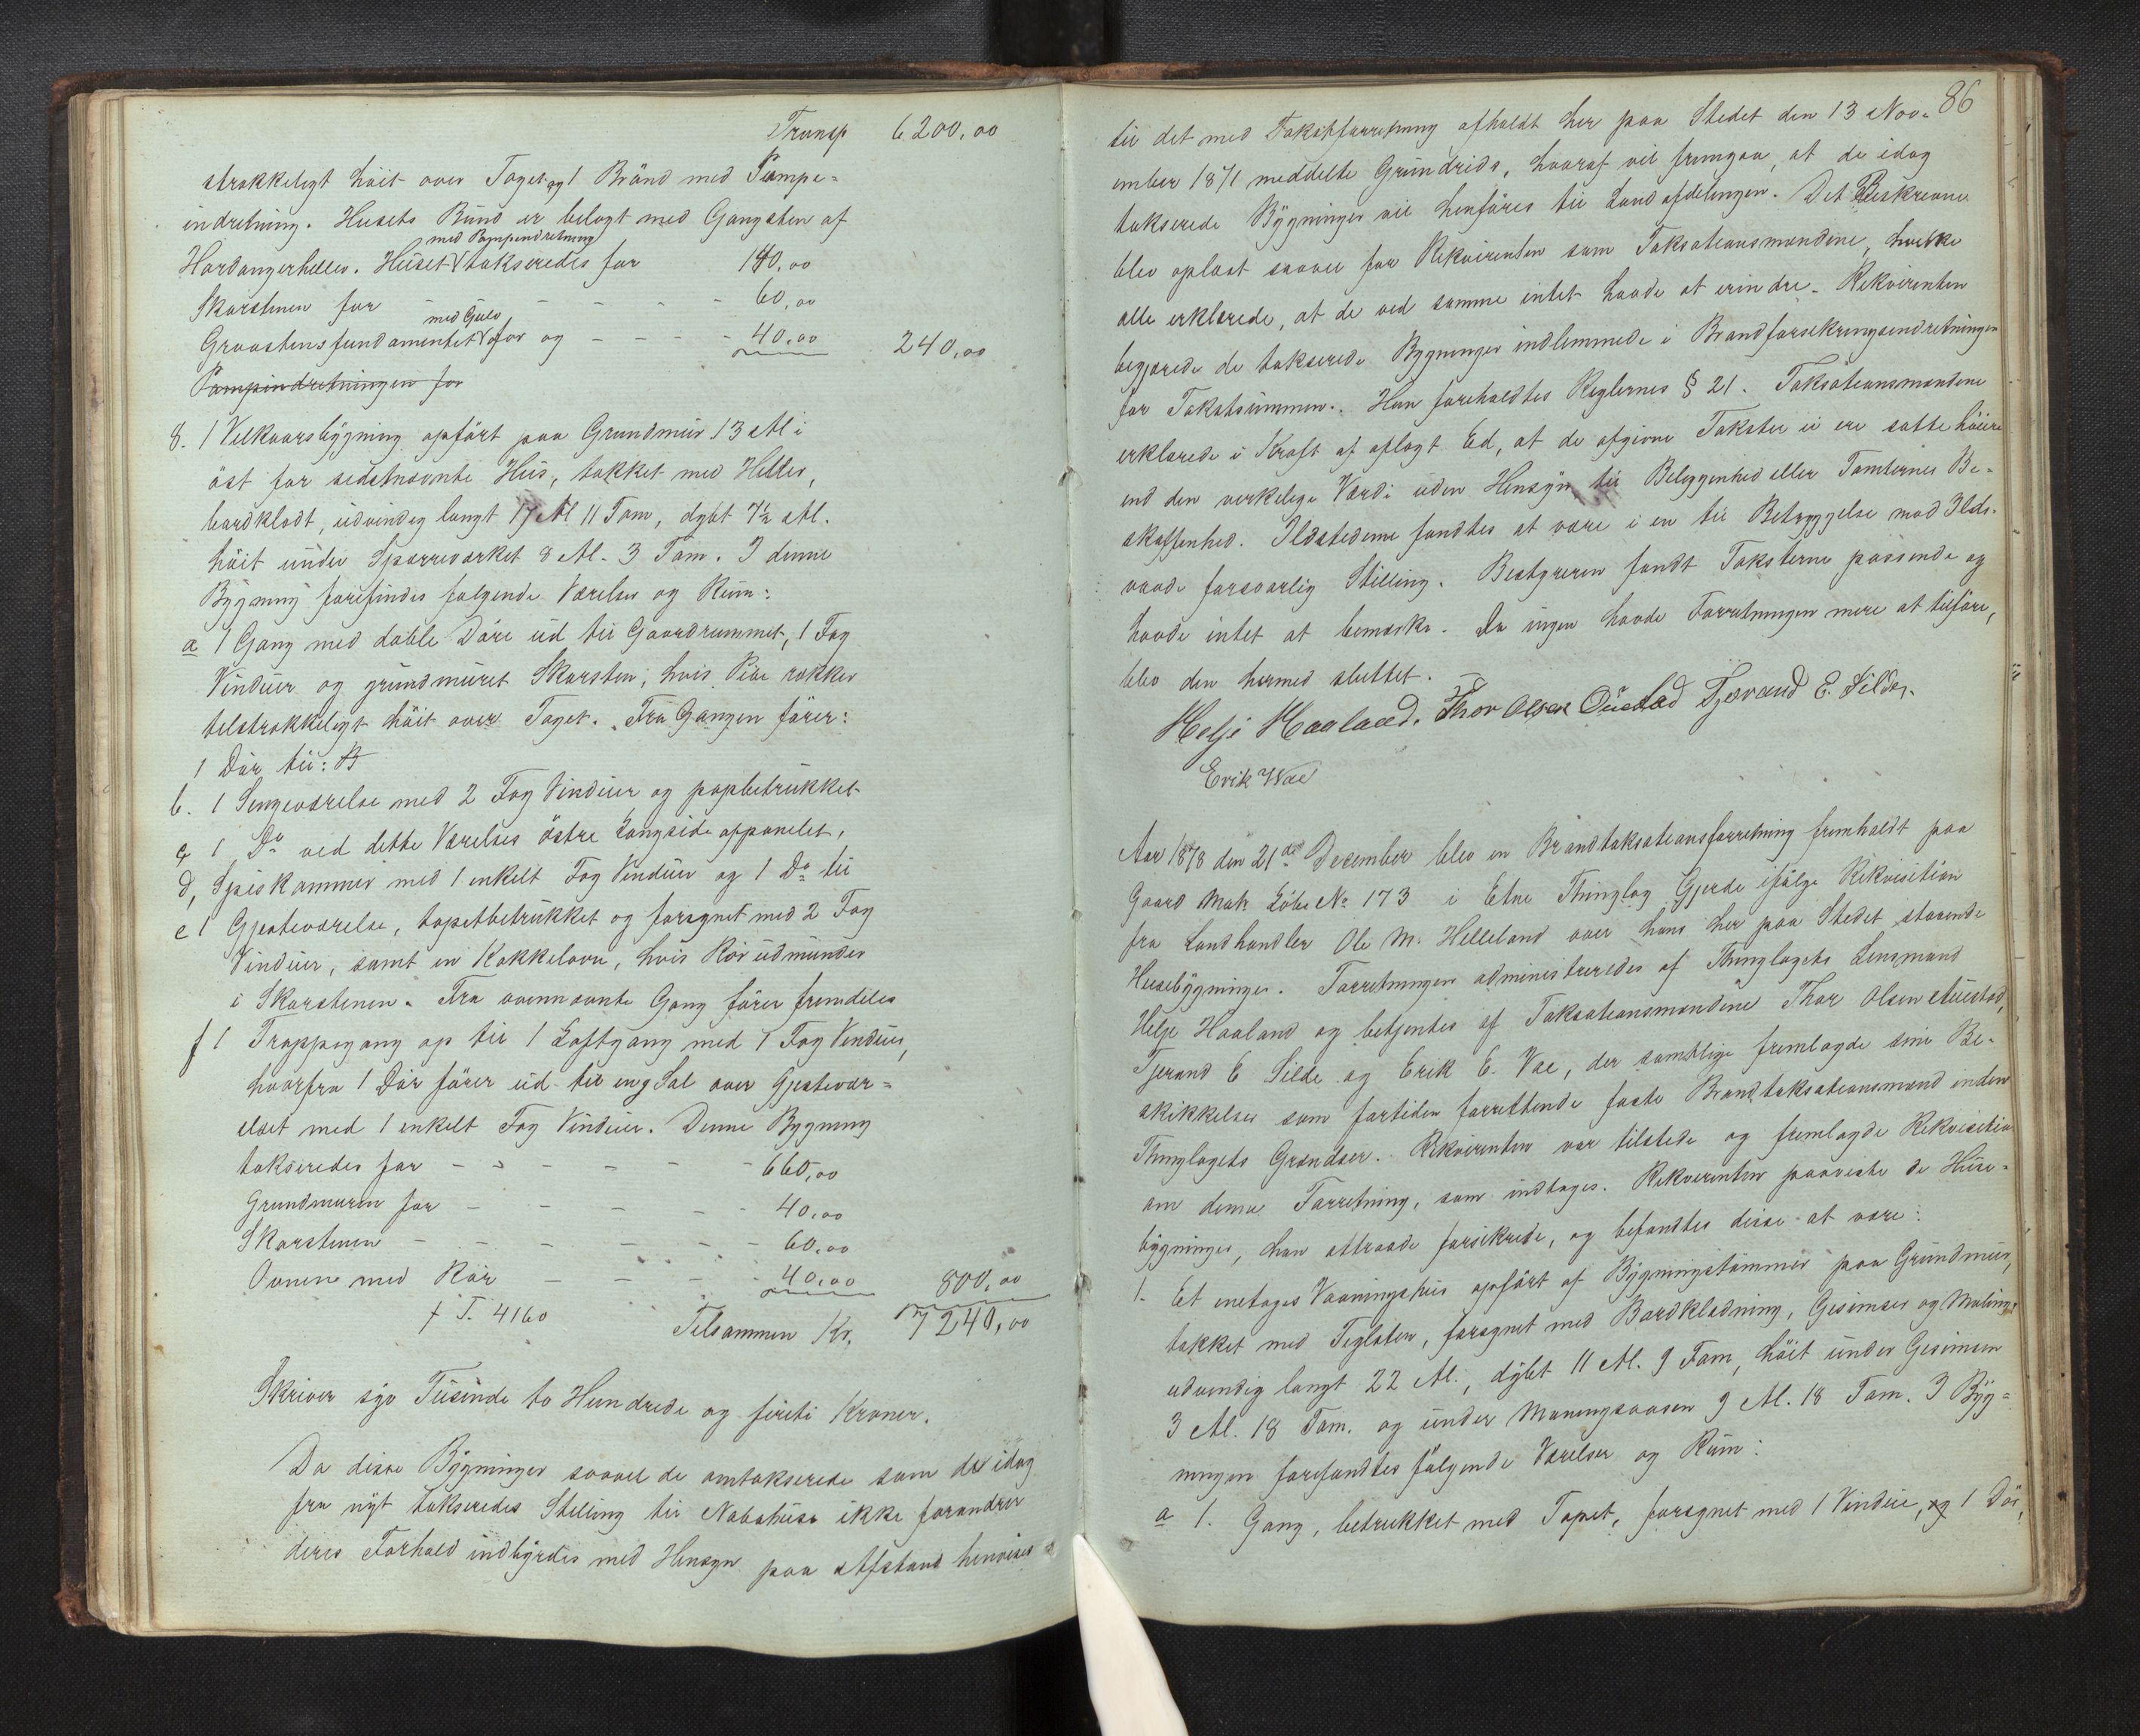 Transp 6200,00
strækkeligt höit over Taget og 1 Brönd med Pumpe-
indretning. Husets Bund er belagt med Gangsten af
med Pumpindretning
Hardangerheller. Huset takseredes for 140,00
Skorstenen for - - - - 60,00
med Gulv
Graastensfundamentet for og - - - - 40,00 240,00
Pumpindretningen for
8. 1 Vilkaarsbygning opfört paa Grundmuur 13 Al i
öst for sidstnævnte Huus, tækket med Heller,
bordklædt, udvendig langt 17 Al 11 Tom, dybt 7½ Al.
höit under Sparreværket 8 Al. 3 Tom. I denne
Bygning forefindes følgende Værelser og Rum:
a 1 Gang med doble Döre ud til Gaardrummet, 1 Fag
Vinduer og grundmuret Skorsten, hvis Pibe rækker
tilstrækkeligt höit over Taget. Fra Gangen förer:
1 Dör til: B
b. 1 Sengeværelse med 2 Fag Vinduer og papbetrukket
c 1 Do ved dette Værelses östre Langside oppanelet,
d, Spiskammer med 1 enkelt Fag Vinduer og 1 Do til
e 1 Gjesteværelse, tapetbetrukket og forsynet med 2 Fag
Vinduer, samt en Kakkelovn, hvis Rör udmunder
i Skorstenen. Fra ovennævnte Gang förer fremdeles
f 1 Trappegang op til 1 Loftgang med 1 Fag Vinduer,
hvorfra 1 Dör förer ud til en Sal over Gjestevær-
elset med 1 enkelt Fag Vinduer. Denne Bygning
takseredes for - - - - - - 660,00
Grundmuren for - - - - - 40,00
Skorstenen - - - - - - 60,00
Ovnene med Rör - - - - 40,00 800,00
T. 4160 Tilsammen Kr. 7240,00
Skriver syv Tusinde to Hundrede og firti Kroner.
Da disse Bygninger saavel de omtakserede som de idag
fra nyt takseredes Stilling til Nabohuse ikke forandrer
deres Forhold indbyrdes med Hensyn paa Afstand henvises
86
til det med Takstforretning afholdt her paa Stedet den 13 Nov-
ember 1871 meddelte Grundrids, hvoraf vil fremgaa, at de idag
takserede Bygninger vil henföres til Landafdelingen. Det Beskrevne
blev oplæst saavel for Rekvirenten som Taksationsmændene, hvilke
alle erklærede, at de ved samme intet havde at erindre. Rekvirenten
begjærede de takserede Bygninger indlemmede i Brandforsikringsindretningen
for Takstsummen. Han foreholdtes Reglernes § 21. Taksationsmændene
erklærede i Kraft af aflagt Ed, at de afgivne Takster ei ere satte höiere
end den virkelige Værdi uden Hensyn til Beliggenhed eller Tomternes Be-
skaffenhed. Ildstederne fandtes at være i en til Betryggelse mod Ilds-
vaade forsvarlig Stilling. Bestyreren fandt Taksterne passende og
havde intet at bemærke. Da ingen havde Forretningen mere at tilföre,
blev den hermed sluttet.
Helje Haaland. Thor Olsen Öiestad Tjerand E. Silde.
Erik Vae
Aar 1878 den 21de Dezember blev en Brandtaksationsforretning fremholdt paa
Gaard Matr Löbe No 173 i Etne Thinglag Gjerde ifölge Rekvisition
fra Landhandler Ole M. Helleland over hans her paa Stedet staaende
Husebygninger. Forretningen administreredes af Thinglagets Lensmand
Helje Haaland og betjentes af Taksationsmændene Thor Olsen Auestad,
Tjerand E Silde og Erik E. Vae, der samtlige fremlagde sine Be-
skikkelser som fortiden forrettende faste Brandtaksationsmænd inden
Thinglagets Grændser. Rekvirenten var tilstede og fremlagde Rekvisition
om denne Forretning, som indtages. Rekvirenten paaviste de Huse-
bygninger, han attraade forsikrede, og befandtes disse at være:
1. Et enetages Vaaningshus opfört af Bygningstömmer paa Grundmur,
tækket med Teglsten, forsynet med Bordklædning, Gesimser og Maling,
udvendig langt 22 Al., dybt 11 Al. 9 Tom, höit under Gesimsen
3 Al. 18 Tom. og under Möningsaasen 9 Al. 18 Tom. I Byg-
ningen forefandtes fölgende Værelser og Rum:
a 1. Gang, betrukket med Tapet, forsynet med 1 Vindue, og 1 Dör,